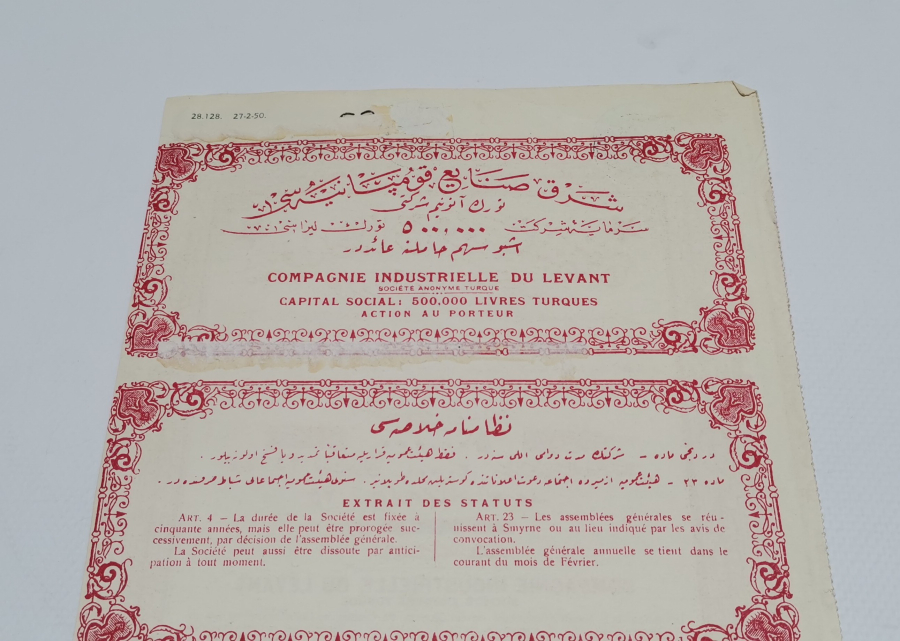 28.128. 27-2-50.
شرق صنايع قومپانيه سى
تورك آنونيم شركتى
سرمايهٔ شركت ٥٠٠,٠٠٠ تورك ليراسيدر
اشبو سهم حاملنه عائددر
COMPAGNIE INDUSTRIELLE DU LEVANT
SOCIÉTÉ ANONYME TURQUE
CAPITAL SOCIAL: 500.000 LIVRES TURQUES
ACTION AU PORTEUR
نظامنامه خلاصه سى
دردنجى ماده – شركتك مدت دوامى اللى سنه در . فقط هيئت عموميه قراريله
ماده ٢٣ – هيئت عموميه ازميرده
EXTRAIT DES STATUTS
ART. 4 – La durée de la Société est fixée à
cinquante années, mais elle peut être prorogée suc-
cessivement, par décision de l'assemblée générale.
La Société peut aussi être dissoute par antici-
pation à tout moment.
ART. 23 – Les assemblées générales se réu-
nissent à Smyrne ou au lieu indiqué par les avis de
convocation.
L'assemblée générale annuelle se tient dans le
courant du mois de Février.